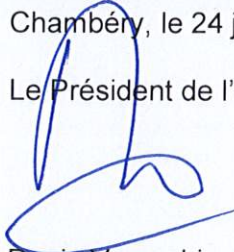 Chambéry, le 24 j
Le Président de l'